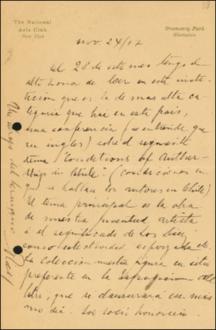 The National
Arts Club
New York
Gramercy Park
Manhattan
Nov. 24/17
el 28 de este mes tengo el
alto honor de leer en esta insti-
tución que es la de mas alta ca-
tegoria que hay en este país,
una conferencia (se entiende que
en ingles) sobre el siguiente
tema "Conditions of Author-
ship in Chile" (condiciones en
que se hallan los autores en Chile)
El tema principal es la obra
de nuestra juventud artista
i el significado de Los Diez,
como colectividad
la colección nuestra figura en sitio
preferente en la Esposicion del
Libro, que se clausurará ese mis-
mo dia. Los socios honorarios